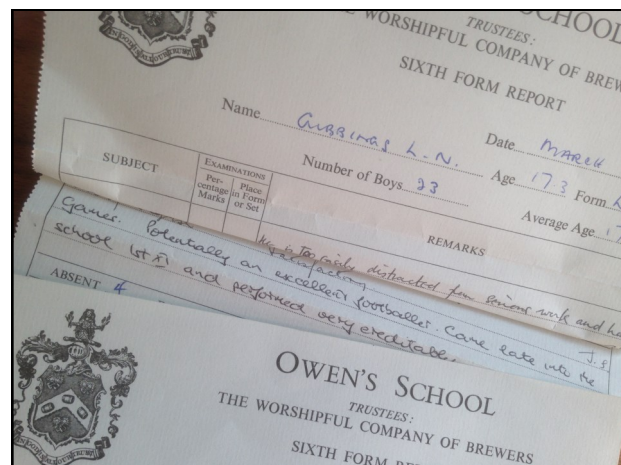 SCHOOL
TRUSTEES:
THE WORSHIPFUL COMPANY OF BREW
SIXTH FORM REPORT
Name GUBBINGS L.N. Date MARCH
Number of Boys 23 Age 17.3 Form
Average Age
SUBJECT
EXAMINATIONS
Per-centage Marks
Place in Form or Set
REMARKS
too easily distracted from serious work and
Games. Potentially an excellent footballer. Came late into the
school 1st XI and performed very creditably.
J.S
ABSENT 4
OWEN'S SCHOOL
TRUSTEES:
THE WORSHIPFUL COMPANY OF BREWERS
SIXTH FORM RE